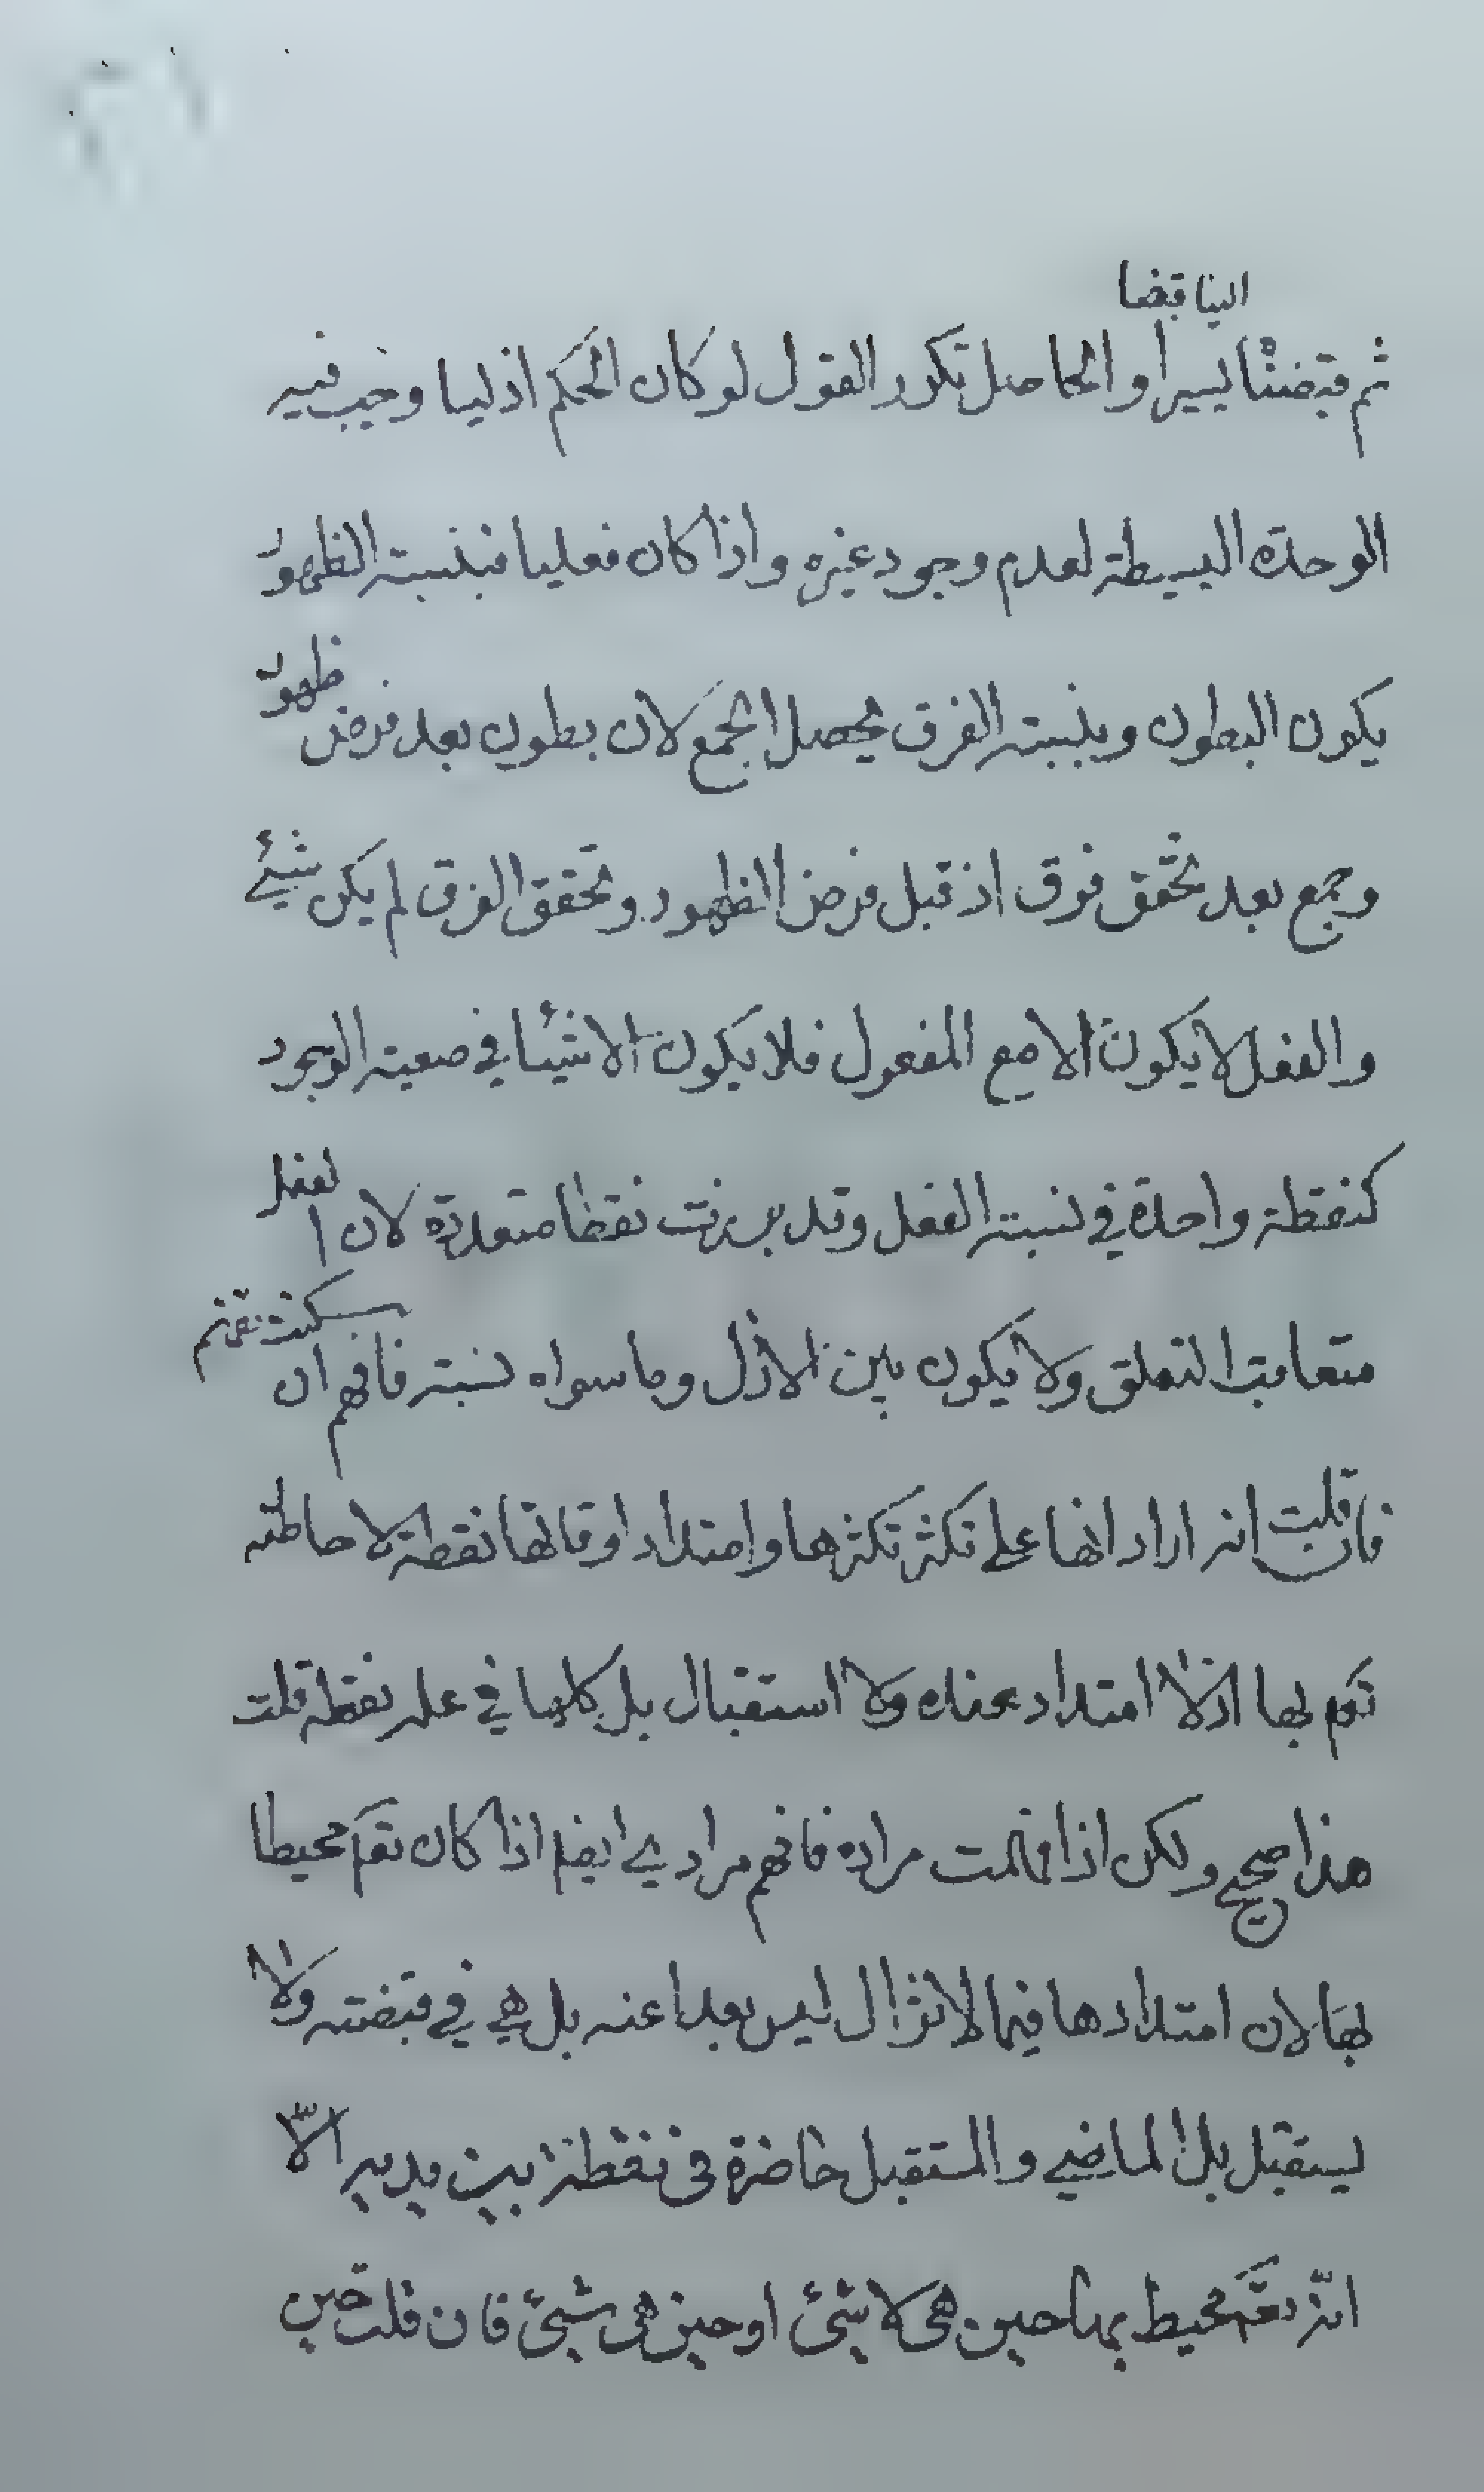 الينا قبضا
ثم قبضناه يسيرا والحاصل تكرر القول لو كان الحكم ازليا وجب فيه
الوحدة البسيطة لعدم وجود غيره واذا كان فعليا فبنسبة الظهور
يكون البطون وبنسبة الفرق يحصل الجمع لان بطون بعد فرض ظهور
وجمع بعد تحقق فرق اذ قبل فرض الظهور وتحقق الفرق لم يكن شيئ
والفعل لا يكون الا مع المفعول فلا يكون الاشيئا في صعيد الوجود
كنقطة واحدة في نسبة الفعل وقد نقطا متعددة لان الفعل
التعلق ولا يكون بين الازل وما سواه نسبة فافهم ان كنت تفهم
فان قلت انه اراد انها على تكثر تكثرها وامتداد اوقاتها نقطة لاحاطته
بها اذ لا امتداد عنده ولا استقبال بل كلها في علمه نقطة قلت
هذا صحيح ولكن اذا فهمت مراده فافهم مرادي ايضا اذا كان تعالى محيطا
بها لان امتدادها فيما لا يزال ليس بعدا عنه بل هي في قبضته ولا
يستقبل بل الماضي والمستقبل حاضرة في نقطة بين يديه الا
انه تعالى محيط بها حين هي لا شيئ او حين هي شيئ فان قلت حين